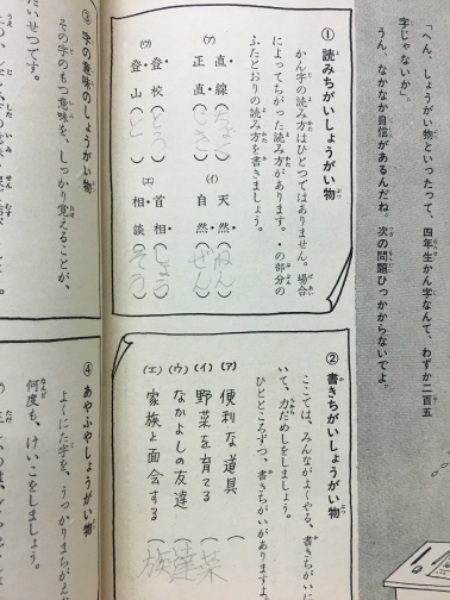 「へん、しょうがい物といったって、四年生かん字なんて、わずか二百五
字じゃないか」
うん、なかなか自信があるんだね。次の問題ひっかからないでよ。
① 読みちがいしょうがい物
かん字の読み方はひとつではありません。場合
によってちがった読み方があります。・の部分の
ふたとおりの読み方を書きましょう。
(ア) 直線(ちょく)
正直(じき)
(イ) 天然(ねん)
自然(ぜん)
(ウ) 登校(とう)
登山(と)
(エ) 首相(しょう)
相談(そう)
② 書きちがいしょうがい物
ここでは、みんながよくやる、書きちがいに
いて、力だめしをしましょう。
ひとところずつ、書きちがいがありますよ。
(ア) 便利な道具 (
(イ) 野菜を育てる (菜
(ウ) なかよしの友達 (達
(エ) 家族と面会する (族
③ 字の意味のしょうがい物
その字のもつ意味を、しっかり覚えることが、
たいせつです。
④ あやふやしょうがい物
よくにた字を、うっかりまちがえ
何度も、けいこをしましょう。